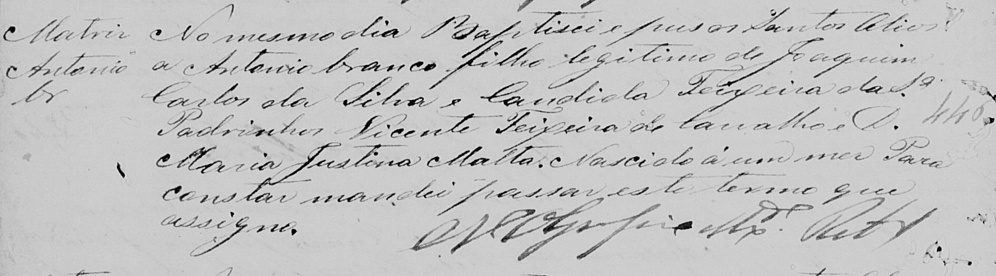 Matriz No mesmo dia Baptisei e pus os Santos Olios
Antonio a Antonio branco filho legitimo de Joaquim
br Carlos da Silva e Candida Teixeira da Sª
Padrinhos Vicente Teixeira de Carvalho e D. 446
Maria Justina Matta. Nascido á um mez Para
constar mandei passar este termo que
assigno.